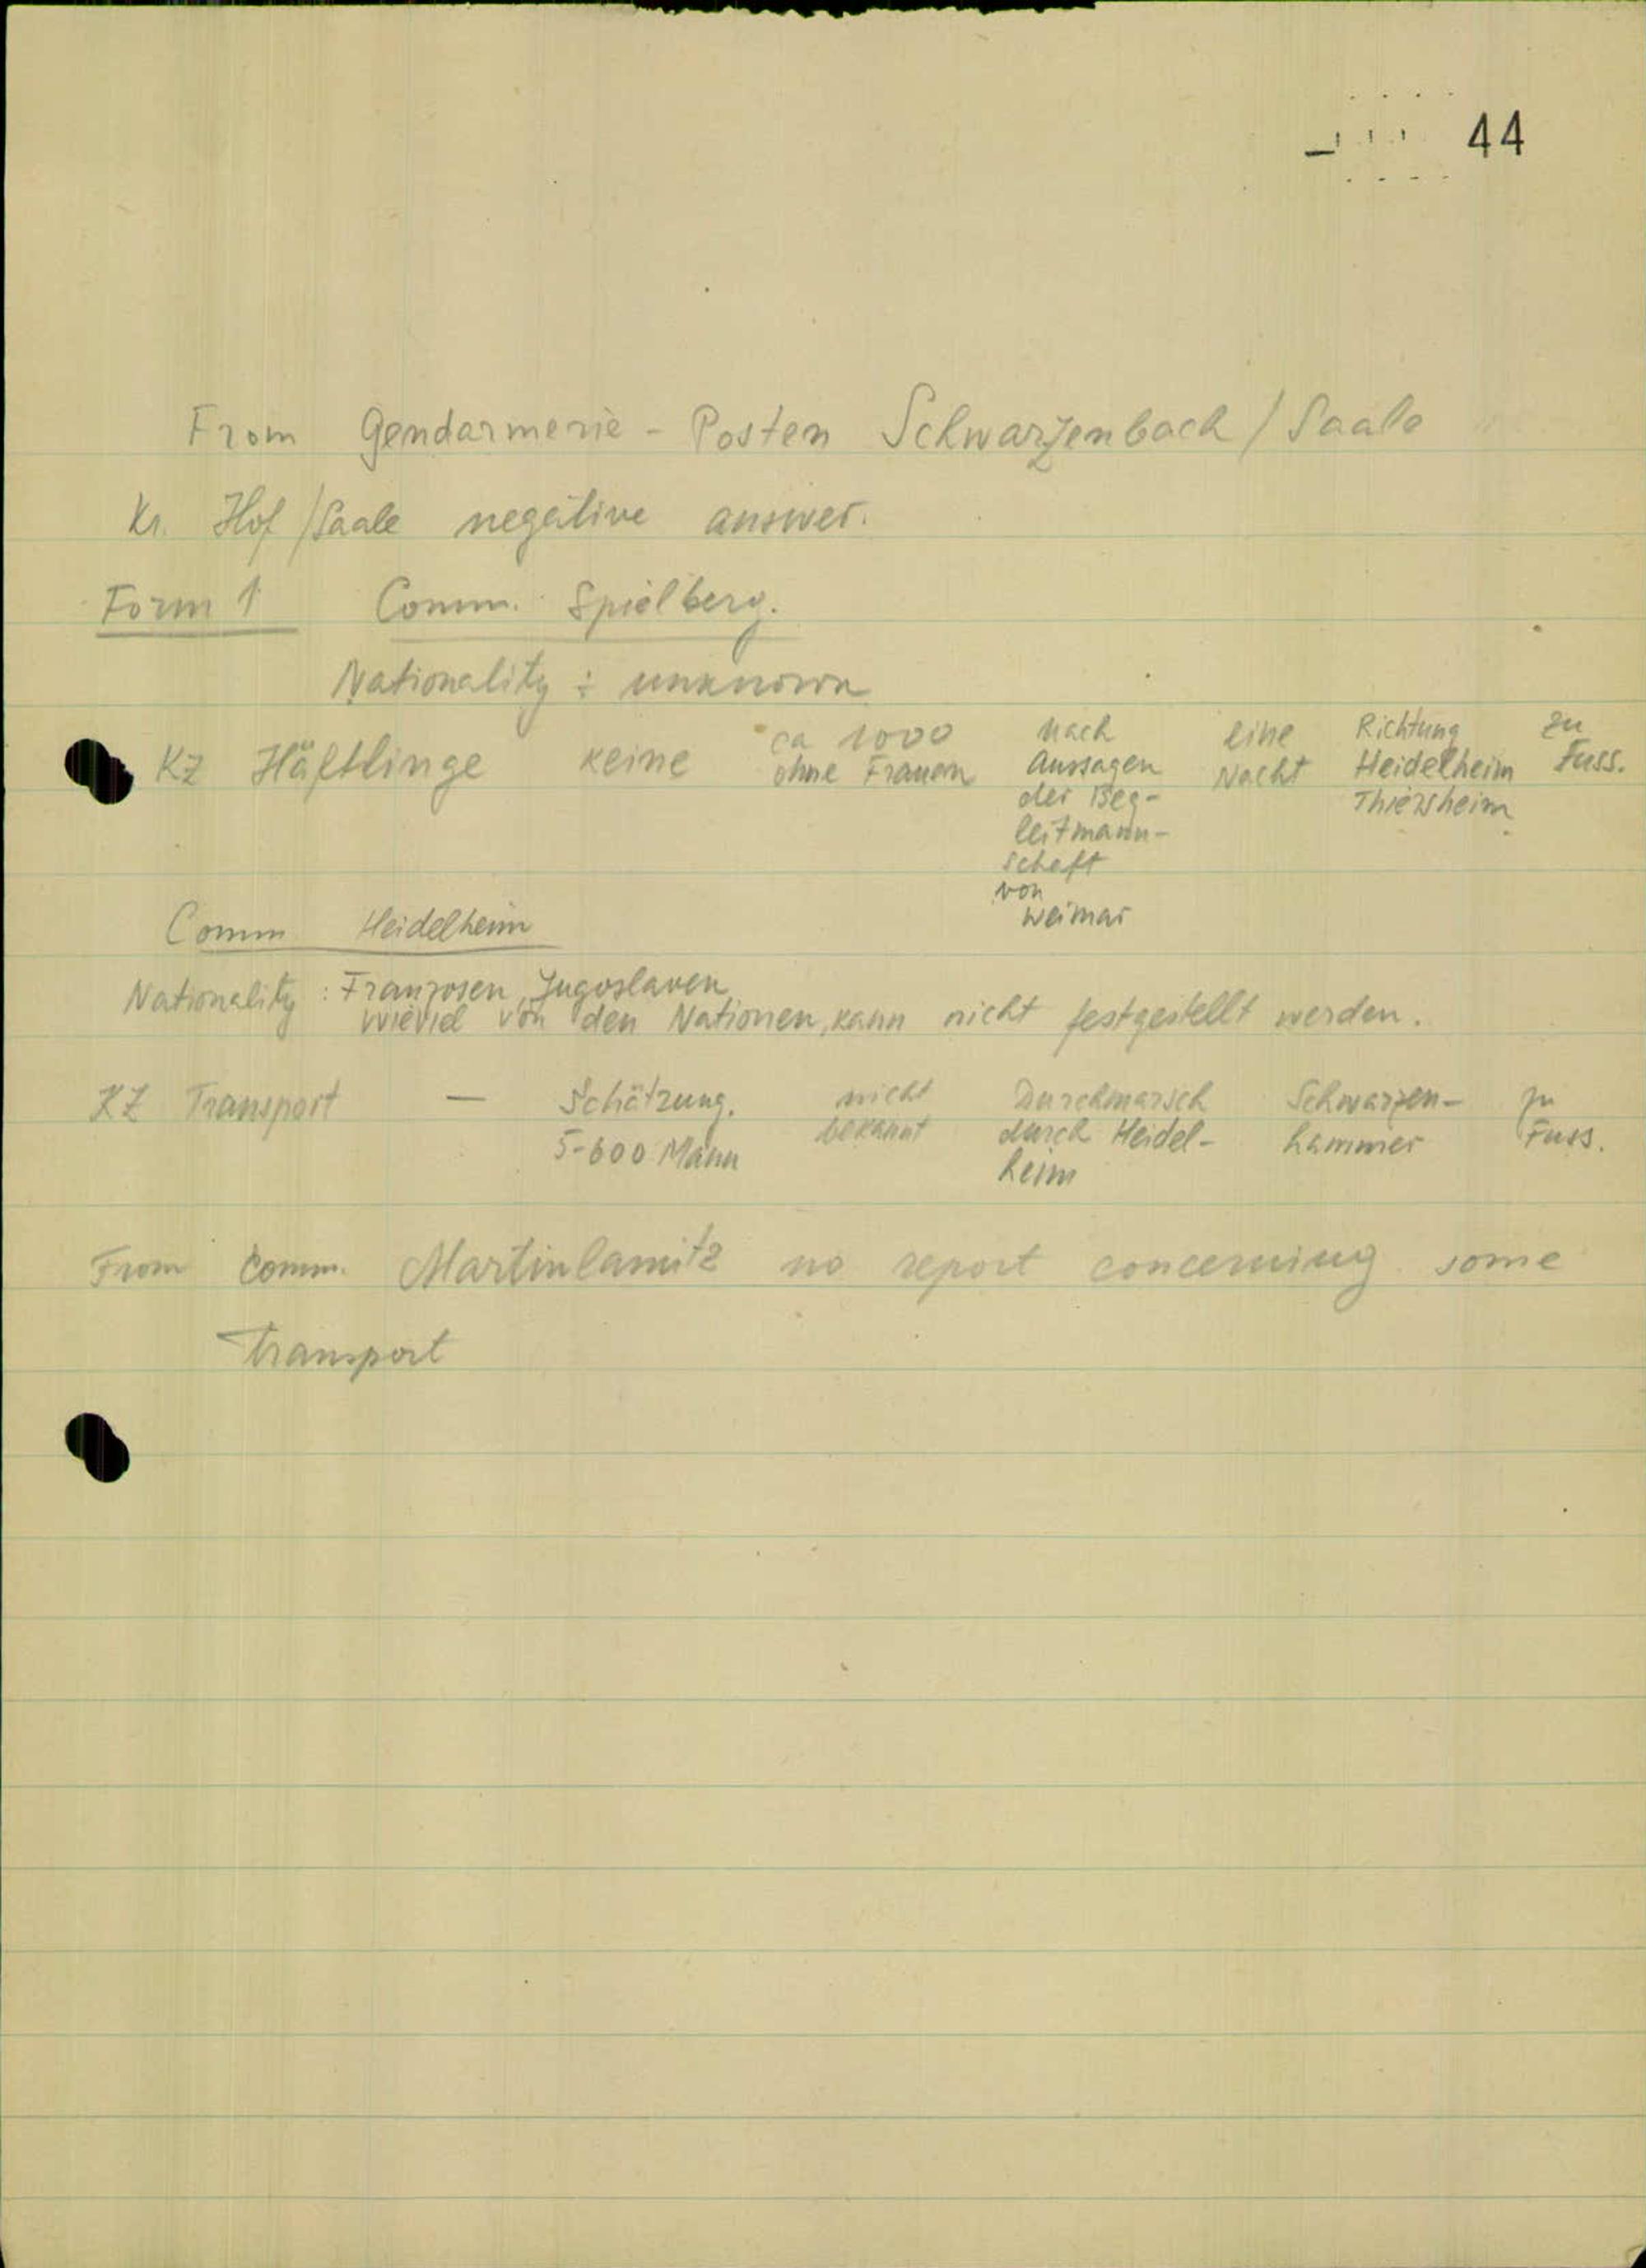 44
From Gendarmerie - Posten Schwarzenbach / Saale
Kr. Hof / Saale negative answer.
Form 1 Comm. Spielberg.
Nationality : unknown
KZ Häftlinge keine ca 1000 ohne Frauen nach Aussagen der Beg- eine Nacht Richtung Heidelheim Thiersheim zu Fuss.
leitmann-
schaft
von
Weimar
Comm Heidelheim
Nationality : Franzosen, Jugoslaven
wieviel von den Nationen, kann nicht festgestellt werden.
KZ Transport — Schätzung. nicht Durchmarsch Schwarzen- zu
5-600 Mann bekannt durch Heidel- hammer Fuss.
heim
From Comm. Martinlamitz no report concerning some
Transport